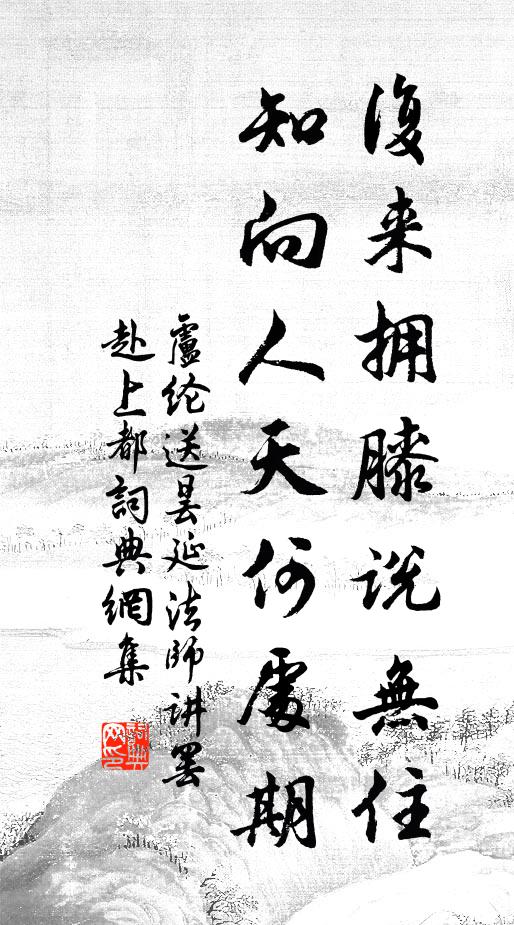 復来拥膝說無住
知向人天何處期
盧纶送曇延法師讲罢
赴上都詞典網集